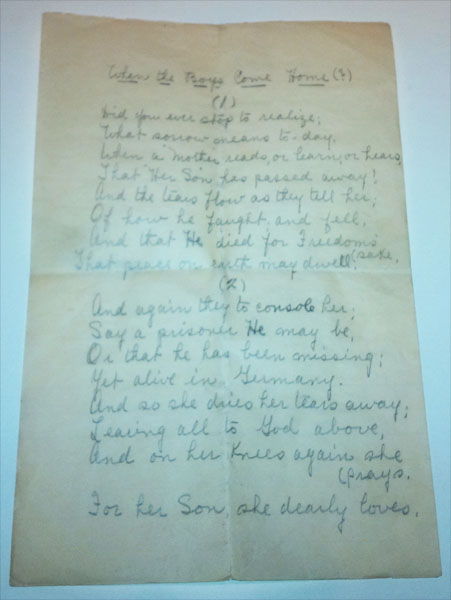 When the Boys Come Home (?)
(1)
Did you ever stop to realize;
What sorrow means to-day.
When a mother reads, or learns, or hears,
That Her Son has passed away!
And the tears flow as they tell her;
Of how he faught and fell;
And that He died for Freedom's
(sake,
That peace on earth may dwell.
(2)
And again they to console her;
Say a prisoner He may be,
Or that he has been missing;
Yet alive in Germany.
And so she dries her tears away;
Leaving all to God above,
And on her Knees again she
(prays.
For her Son, she dearly loves.